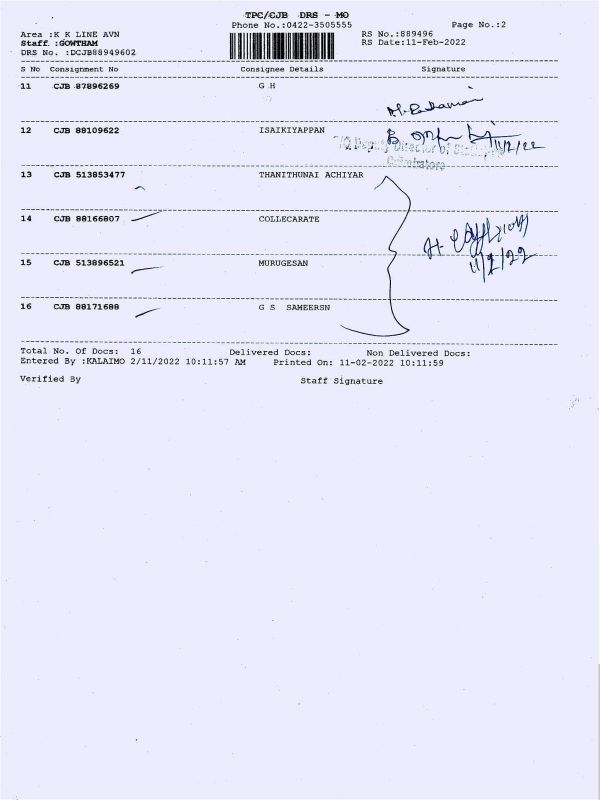 TPC/CJB DRS - MO
Phone No.:0422-3505555 Page No.:2
Area :K K LINE AVN RS No.:889496
Staff :GOWTHAM RS Date:11-Feb-2022
DRS No. :DCJB88949602
S No Consignment No Consignee Details Signature
11 CJB 87896269 G H
12 CJB 88109622 ISAIKIYAPPAN
11/2/22
Deputy Director of
Coimbatore
13 CJB 513853477 THANITHUNAI ACHIYAR
14 CJB 88166807 COLLECARATE
11/2/22
15 CJB 513896521 MURUGESAN
16 CJB 88171688 G S SAMEERSN
Total No. Of Docs: 16 Delivered Docs: Non Delivered Docs:
Entered By :KALAIMO 2/11/2022 10:11:57 AM Printed On: 11-02-2022 10:11:59
Verified By Staff Signature